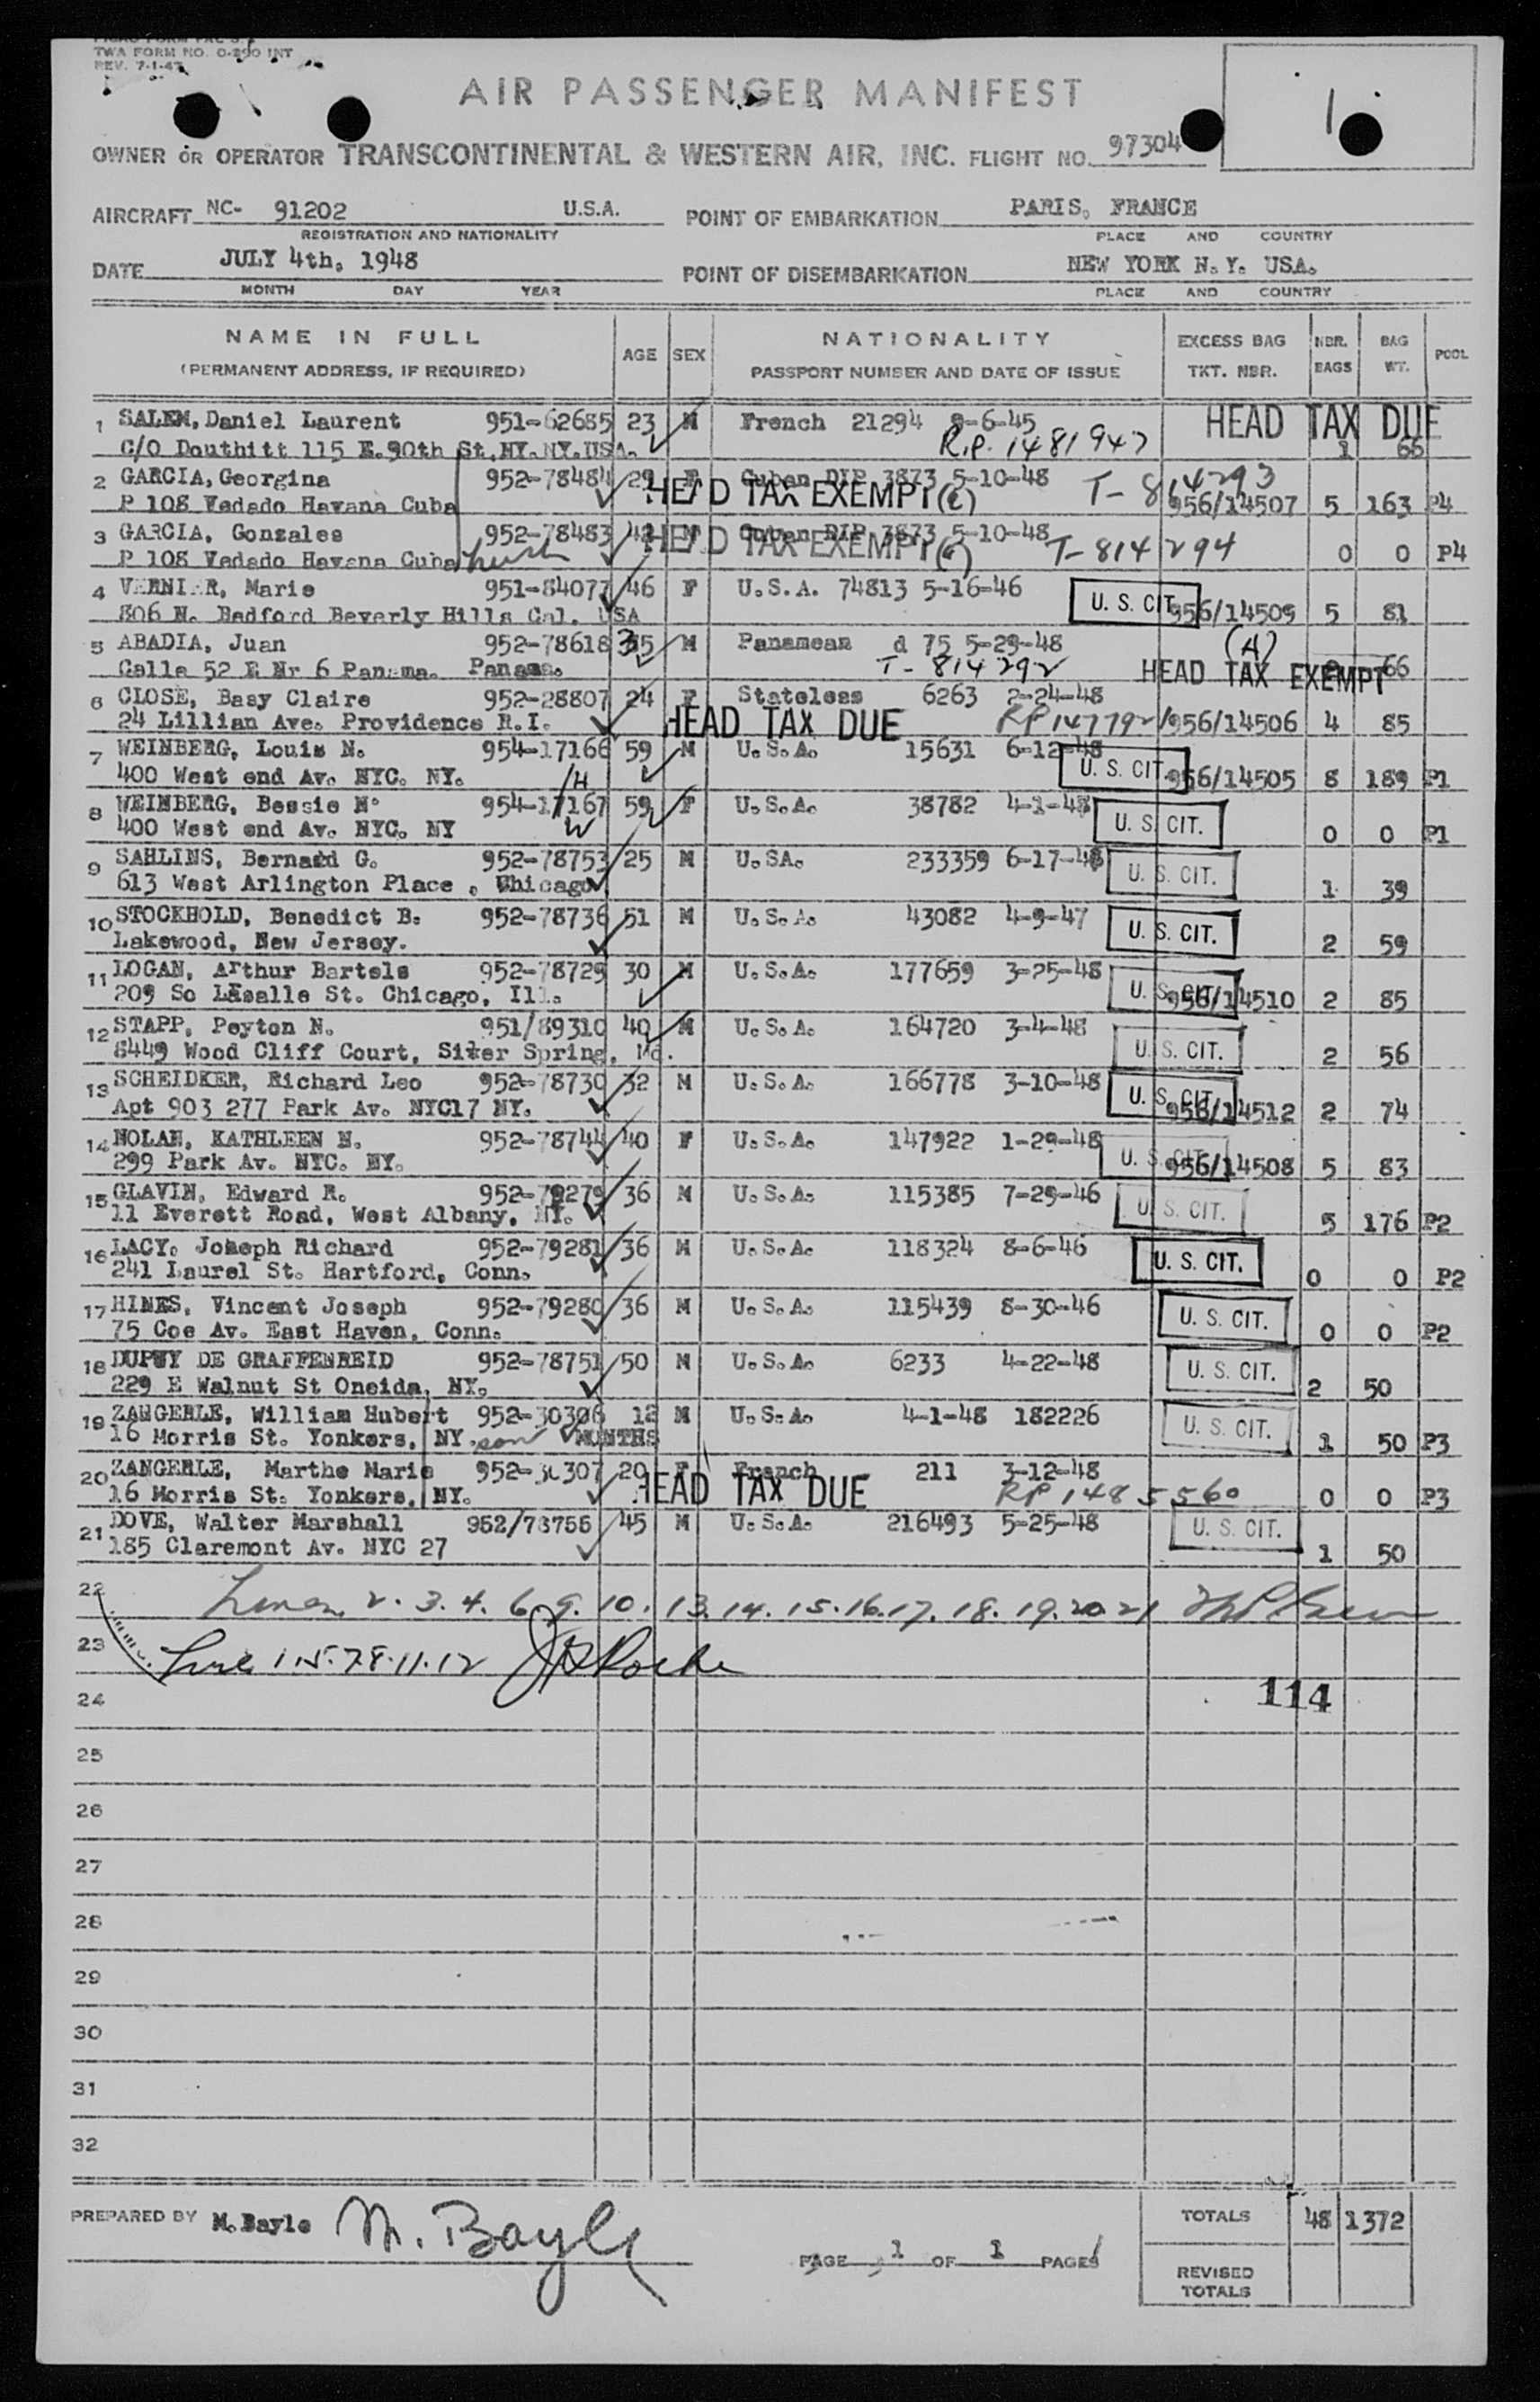 TWA FORM NO. 0-290 INT
REV. 7-1-47
AIR PASSENGER MANIFEST
1
OWNER OR OPERATOR TRANSCONTINENTAL & WESTERN AIR, INC. FLIGHT NO. 97304
AIRCRAFT NC- 91202 U.S.A. POINT OF EMBARKATION PARIS, FRANCE
REGISTRATION AND NATIONALITY PLACE AND COUNTRY
DATE JULY 4th, 1948 POINT OF DISEMBARKATION NEW YORK N.Y. USA.
MONTH DAY YEAR PLACE AND COUNTRY
NAME IN FULL AGE SEX NATIONALITY EXCESS BAG NBR. BAG POOL
(PERMANENT ADDRESS, IF REQUIRED) PASSPORT NUMBER AND DATE OF ISSUE TKT. NBR. BAGS WT.
1 SALEM, Daniel Laurent 951-62685 23 M French 21294 8-6-45 HEAD TAX DUE
C/O Douthitt 115 E.90th St.NY.NY.USA. R.P. 1481947 1 66
2 GARCIA, Georgina 952-78484 29 F Cuban DIP 3873 5-10-48 T-814293
P 108 Vedado Havana Cuba HEAD TAX EXEMPT 956/14507 5 163 P4
3 GARCIA, Gonzales 952-78483 42 M Cuban DIP 3873 5-10-48 T-814294
P 108 Vedado Havana Cuba HEAD TAX EXEMPT 0 0 P4
4 VERNIER, Marie 951-84077 46 F U.S.A. 74813 5-16-46 U.S. CIT.
806 N. Bedford Beverly Hills Cal. USA 956/14509 5 81
5 ABADIA, Juan 952-78618 35 M Panamean d 75 5-29-48 (A)
Calle 52 E Nr 6 Panama. Panama. T-814292 HEAD TAX EXEMPT 66
6 CLOSE, Basy Claire 952-28807 24 F Stateless 6263 2-24-48
24 Lillian Ave. Providence R.I. HEAD TAX DUE RP 1477921 956/14506 4 85
7 WEINBERG, Louis N. 954-17166 59 M U.S.A. 15631 6-12-48 U.S. CIT.
400 West end Av. NYC. NY. H 956/14505 8 189 P1
8 WEINBERG, Bessie N. 954-17167 59 F U.S.A. 38782 4-1-48 U.S. CIT.
400 West end Av. NYC. NY W 0 0 P1
9 SAHLINS, Bernard G. 952-78753 25 M U.SA. 233359 6-17-48 U.S. CIT.
613 West Arlington Place, Chicago 1 39
10 STOCKHOLD, Benedict B. 952-78736 51 M U.S.A. 43082 4-9-47 U.S. CIT.
Lakewood, New Jersey. 2 59
11 LOGAN, Arthur Bartels 952-78729 30 M U.S.A. 177659 3-25-48 U.S. CIT.
209 So LaSalle St. Chicago, Ill. 956/14510 2 85
12 STAPP, Peyton N. 951/89310 40 M U.S.A. 164720 3-4-48 U.S. CIT.
8449 Wood Cliff Court, Silver Spring, Md. 2 56
13 SCHEIDKER, Richard Leo 952-78730 32 M U.S.A. 166778 3-10-48 U.S. CIT.
Apt 903 277 Park Av. NYC17 NY. 956/14512 2 74
14 NOLAN, KATHLEEN N. 952-78744 40 F U.S.A. 147922 1-29-48 U.S. CIT.
299 Park Av. NYC. NY. 956/14508 5 83
15 GLAVIN, Edward R. 952-79279 36 M U.S.A. 115385 7-29-46 U.S. CIT.
11 Everett Road, West Albany, NY. 5 176 P2
16 LACY. Joseph Richard 952-79281 36 M U.S.A. 118324 8-6-46 U.S. CIT.
241 Laurel St. Hartford, Conn. 0 0 P2
17 HINES, Vincent Joseph 952-79280 36 M U.S.A. 115439 8-30-46 U.S. CIT.
75 Coe Av. East Haven, Conn. 0 0 P2
18 DUPUY DE GRAFFENREID 952-78751 50 M U.S.A. 6233 4-22-48 U.S. CIT.
229 E Walnut St Oneida, NY. 2 50
19 ZANGERLE, William Hubert 952-30306 12 M U.S.A. 4-1-48 182226 U.S. CIT.
16 Morris St. Yonkers, NY. son MONTHS 1 50 P3
20 ZANGERLE, Marthe Marie 952-30307 20 F French 211 3-12-48
16 Morris St. Yonkers, NY. HEAD TAX DUE RP 1485560 0 0 P3
21 DOVE, Walter Marshall 952/78755 45 M U.S.A. 216493 5-25-48 U.S. CIT.
185 Claremont Av. NYC 27 1 50
22 Lines 2. 3. 4. 6. 9. 10. 13. 14. 15. 16. 17. 18. 19. 20 21
23 Line 1.5.7.8.11.12
24 114
25
26
27
28
29
30
31
32
PREPARED BY M.Bayle M. Bayle TOTALS 48 1372
PAGE 1 OF 1 PAGES
REVISED
TOTALS